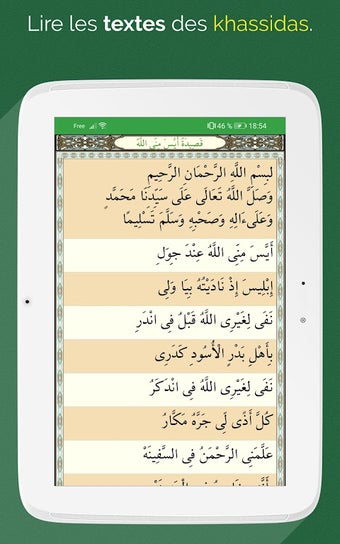 Lire les textes des khassidas.
Free 46 % 18:54
قَصِيدَةُ أَيَّسَ مِنِّى اللَّهُ
لبِسْمِ اللَّهِ الرَّحْمَانِ الرَّحِيمِ
وَصَلَّ اللَّهُ تَعَالَى عَلَى سَيِّدِنَا مَحَمَّدٍ
وَعَلَىءَالِهِ وَصَحْبِهِ وَسَلَّمَ تَسْلِيمًا
أَيَّسَ مِنِّى اللَّهُ عِنْدَ جوَلِ
إِبْلِيسَ إِذْ نَادَيْتُهُ بِيَا وَلِى
نَفَى لِغَيْرِى اللَّهُ قَبْلُ فِى انْدَرِ
بِأَهْلِ بَدْرٍ الْأُسُودِ كَدَرِى
نَفَى لِغَيْرِى اللَّهُ فِى انْدَكَرُ
كُلَّ أَذًى لِى جَرَّهُ مَكَّارُ
عَلَّمَنِى الرَّحْمَنُ فِى السَّفِينَهْ